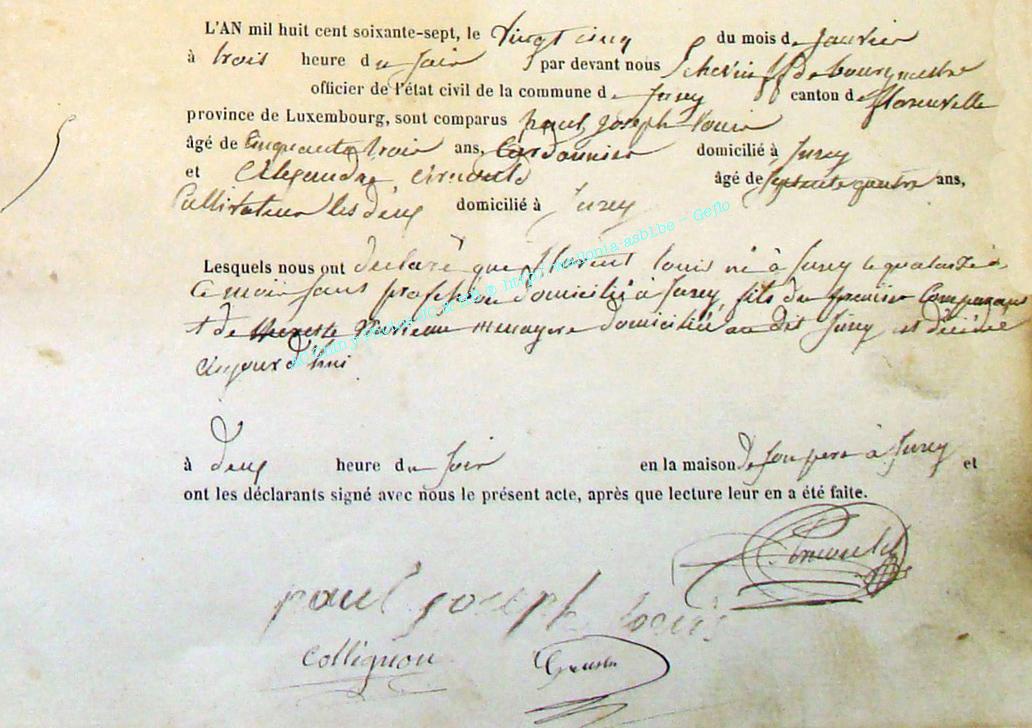 L'AN mil huit cent soixante-sept, le vingt cinq du mois de janvier
à trois heure du soir par devant nous Echevin ff de bourgmestre
officier de l'état civil de la commune de canton de florenville
province de Luxembourg, sont comparus paul joseph louis
âgé de Cinquante trois ans, Cordonnier domicilié à
et Alexandre âgé de septante quatre ans,
Cultivateur les deux domicilié à
Lesquels nous ont déclaré que florent louis né à le quatorze de
Ce mois sans profession domicilié à fils du premier Comparant
et de menagere domiciliée au dit est décédé
Aujourd'hui
à deux heure du soir en la maison de son pere à et
ont les déclarants signé avec nous le présent acte, après que lecture leur en a été faite.
paul joseph louis
Collignon